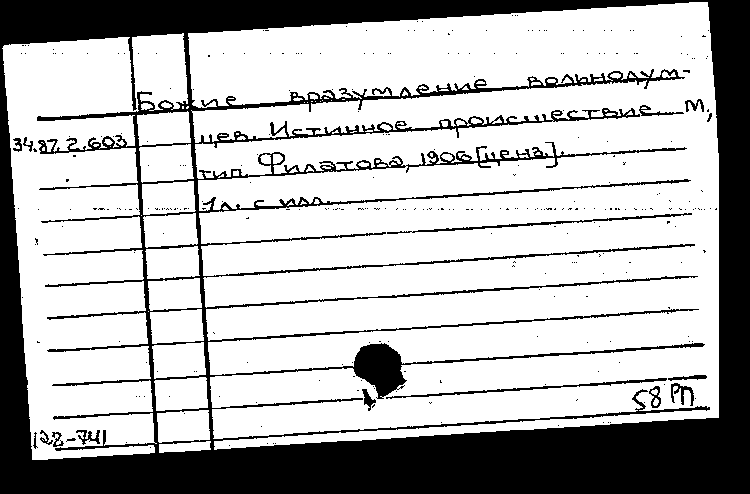 Божие вразумление вольнодум-
34.87.2.603 цев. Истинное происшествие. М,
тип. Филатова, 1906 [ценз.].
1л. с илл.
58 РП
128-741